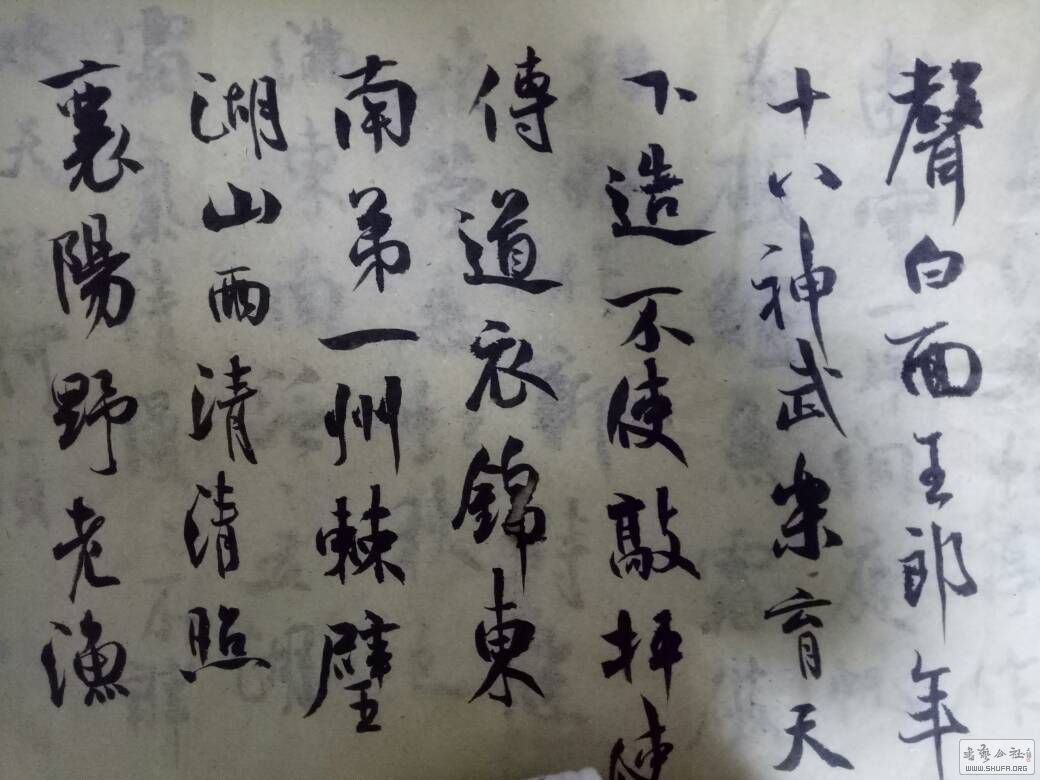 聲白面王郎年
十八神武樂育天
下造不使敲枰使
傳道衣錦東
南弟一州棘璧
湖山兩清清照
襄陽野老漁
書藝公社
WWW.SHUFA.ORG